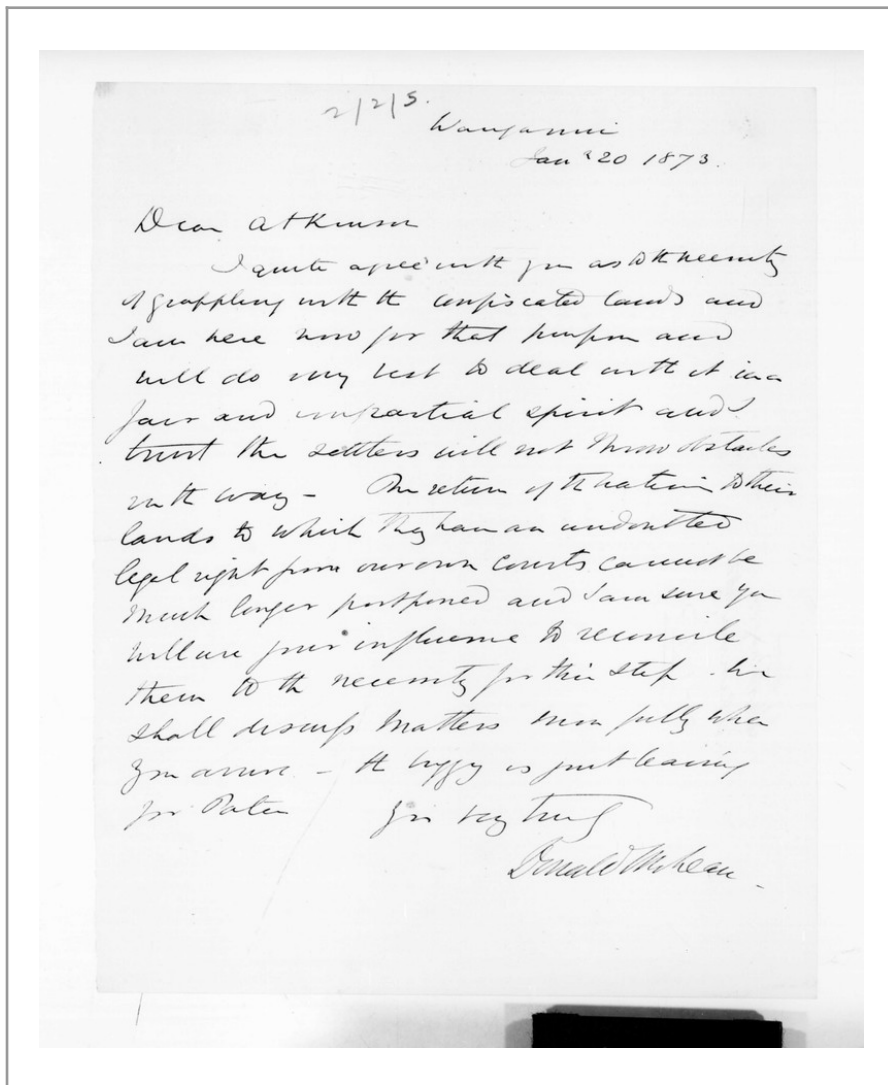 2/2/5.
Wanganui
Jany 20 1873.
Dear Atkinson
I quite agree with you as to the necessity
of grappling with the confiscated lands and
I am here now for that purpose and
will do my best to deal with it in a
fair and impartial spirit and I
trust the settlers will not throw obstacles
in the way – The return of the natives to their
lands to which they have an undoubted
legal right from our own Courts cannot be
much longer postponed and I am sure you
will use your influence to reconcile
them to the necessity for this step. We
shall discuss matters more fully when
you arrive – the buggy is just leaving
for Patea Yrs very truly
Donald McLean